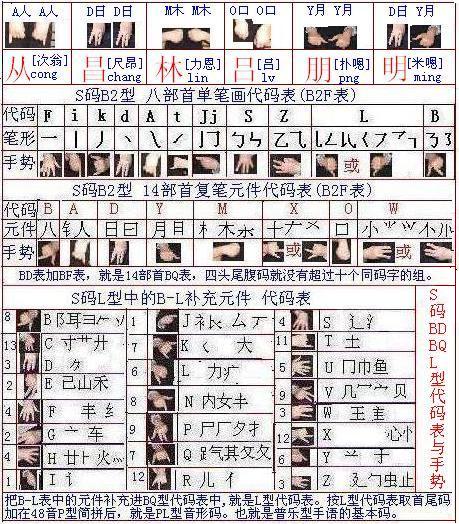 A人 A人 D日 D日 M木 M木 O口 O口 Y月 Y月 D日 Y月
从[次翁]cong 昌[尺昂]chang 林[力恩]lin 吕[吕]lv 朋[扑喝]png 明[米喝]ming
S码B2型 八部首单笔画代码表(B2F表)
代码 F i k d A t Jj S Z L B
笔形 一 丨 丿 丶
手势 或
S码B2型 14部首复笔元件代码表(B2F表)
代码 B A D Y M X O W
元件 八 钅人 日曰 月目 木 十 口 小
手势 或 或
BD表加BF表，就是14部首BQ表，四头尾腹码就没有超过十个同码字的组。
S码L型中的B-L补充元件 代码表
8 B 阝耳彐 1 J 4 S 辶氵
13 C 寸艹廾 7 K 厶 大 11 T 土
3 D 6 L 力 5 U 冂巾鱼
2 E 已山禾 8 N 内女丰 9 V 几冖宀贝
4 F 丰纟 9 P 尸厂 3 W 王
2 G 亠车 7 Q 气其欠攵 12 X 心忄
4 H 廿火 6 Y
1 I 讠 12 R 儿亻 3 Z 止
S码BDBQL型代码表与手势
把B-L表中的元件补充进BQ型代码表中,就是L型代码表。按L型代码表取首尾码
加在48音P型简拼后，就是PL型音形码。也就是普乐型手语的基本码。